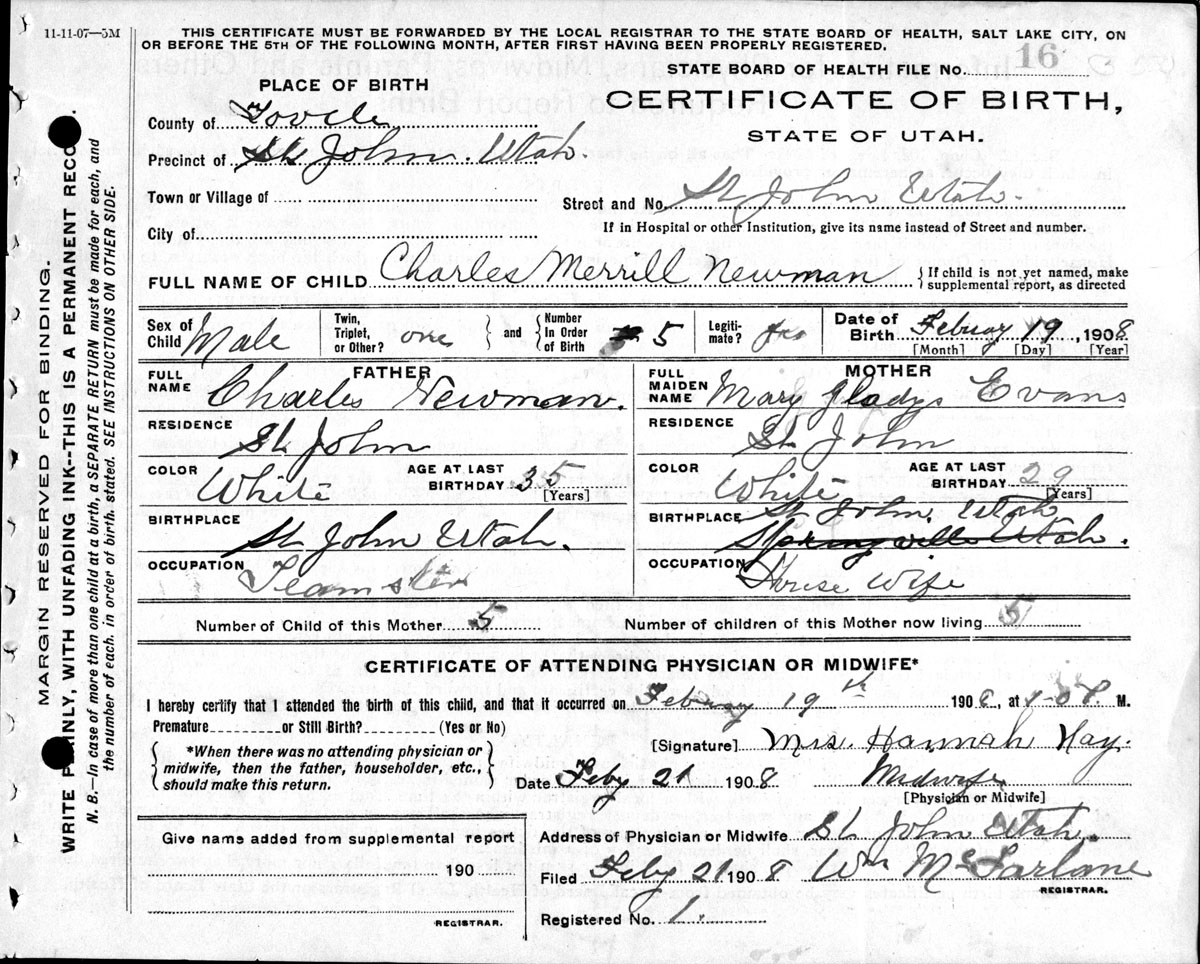 11-11-07—5M
THIS CERTIFICATE MUST BE FORWARDED BY THE LOCAL REGISTRAR TO THE STATE BOARD OF HEALTH, SALT LAKE CITY, ON
OR BEFORE THE 5TH OF THE FOLLOWING MONTH, AFTER FIRST HAVING BEEN PROPERLY REGISTERED.
STATE BOARD OF HEALTH FILE No. 16
PLACE OF BIRTH
CERTIFICATE OF BIRTH,
STATE OF UTAH.
County of Tooele
Precinct of St John. Utah.
Town or Village of
Street and No. St John Utah.
City of
If in Hospital or other Institution, give its name instead of Street and number.
FULL NAME OF CHILD Charles Merrill Newman { If child is not yet named, make
supplemental report, as directed
Sex of Child Male Twin, Triplet, or Other? one } and { Number In Order of Birth 5 Legiti-mate? yes Date of Birth Februay 19, 1908
[Month] [Day] [Year]
FATHER MOTHER
FULL NAME Charles Newman. FULL MAIDEN NAME Mary Gladys Evans
RESIDENCE St John RESIDENCE St John
COLOR White AGE AT LAST BIRTHDAY 35 [Years] COLOR White AGE AT LAST BIRTHDAY 29 [Years]
BIRTHPLACE St John Utah. BIRTHPLACE St John. Utah
Springville Utah.
OCCUPATION Teamster OCCUPATION House Wife
Number of Child of this Mother 5 Number of children of this Mother now living 5
CERTIFICATE OF ATTENDING PHYSICIAN OR MIDWIFE*
I hereby certify that I attended the birth of this child, and that it occurred on Februay 19th 1908, at M.
Premature or Still Birth? (Yes or No)
{ *When there was no attending physician or
midwife, then the father, householder, etc.,
should make this return. }
[Signature] Mrs. Hannah Hay.
Date Feby 21 1908 Midwife
[Physician or Midwife]
Give name added from supplemental report
190
REGISTRAR.
Address of Physician or Midwife St John Utah.
Filed Feby 21 1908 Wm McFarlane
REGISTRAR.
Registered No. 1.
MARGIN RESERVED FOR BINDING.
WRITE PLAINLY, WITH UNFADING INK--THIS IS A PERMANENT RECO
N. B.—In case of more than one child at a birth, a SEPARATE RETURN must be made for each, and
the number of each. in order of birth. stated. SEE INSTRUCTIONS ON OTHER SIDE.